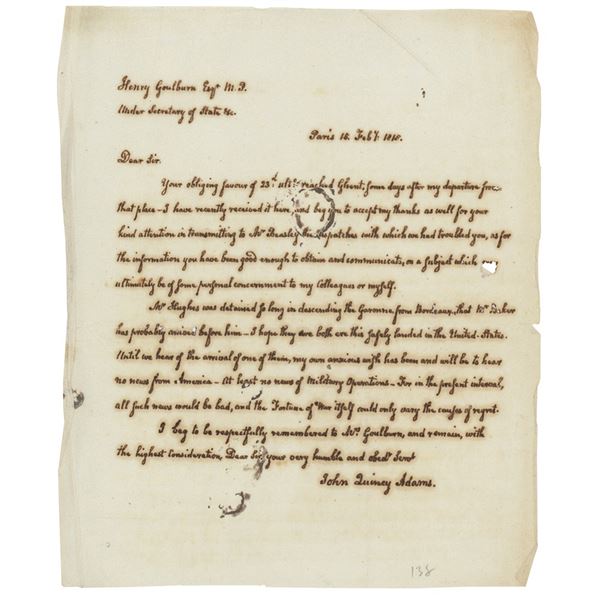 Henry Goulburn Esqr. M. P.
Under Secretary of State &c.
Paris 15. Feby. 1815.
Dear Sir.
Your obliging favour of 23d. ulto. reached Ghent, some days after my departure from
that place—I have recently received it here, and beg you to accept my thanks as well for your
kind attention in transmitting to Mr. Beasley the dispatches with which we had troubled you, as for
the information you have been good enough to obtain and communicate, on a subject which may
ultimately be of some personal concernment to my Colleagues or myself.
Mr. Hughes was detained so long in descending the Garonne from Bordeaux, that Mr. Baker
has probably arrived before him—I hope they are both ere this safely landed in the United-States.
Until we hear of the arrival of one of them, my own anxious wish has been and will be to hear
no news from America—At least no news of Military Operations—For in the present interval,
all such news would be bad, and the Fortune of War itself could only vary the causes of regret.
I beg to be respectfully remembered to Mrs. Goulburn, and remain, with
the highest consideration, Dear Sir, your very humble and obedt. Servt.
John Quincy Adams.
138